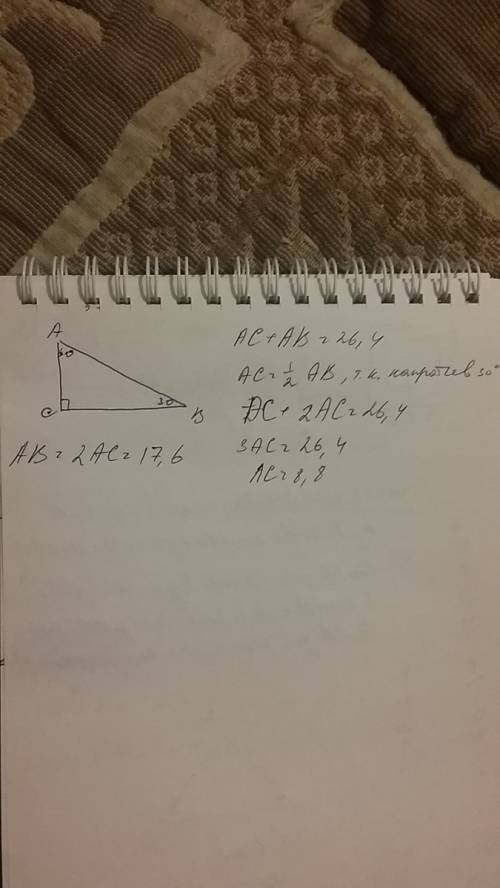 A
60
C
30
B
AB = 2AC = 17,6
AC + AB = 26,4
AC = 1/2 AB, т.к. напротив 30°
AC + 2AC = 26,4
3AC = 26,4
AC = 8,8